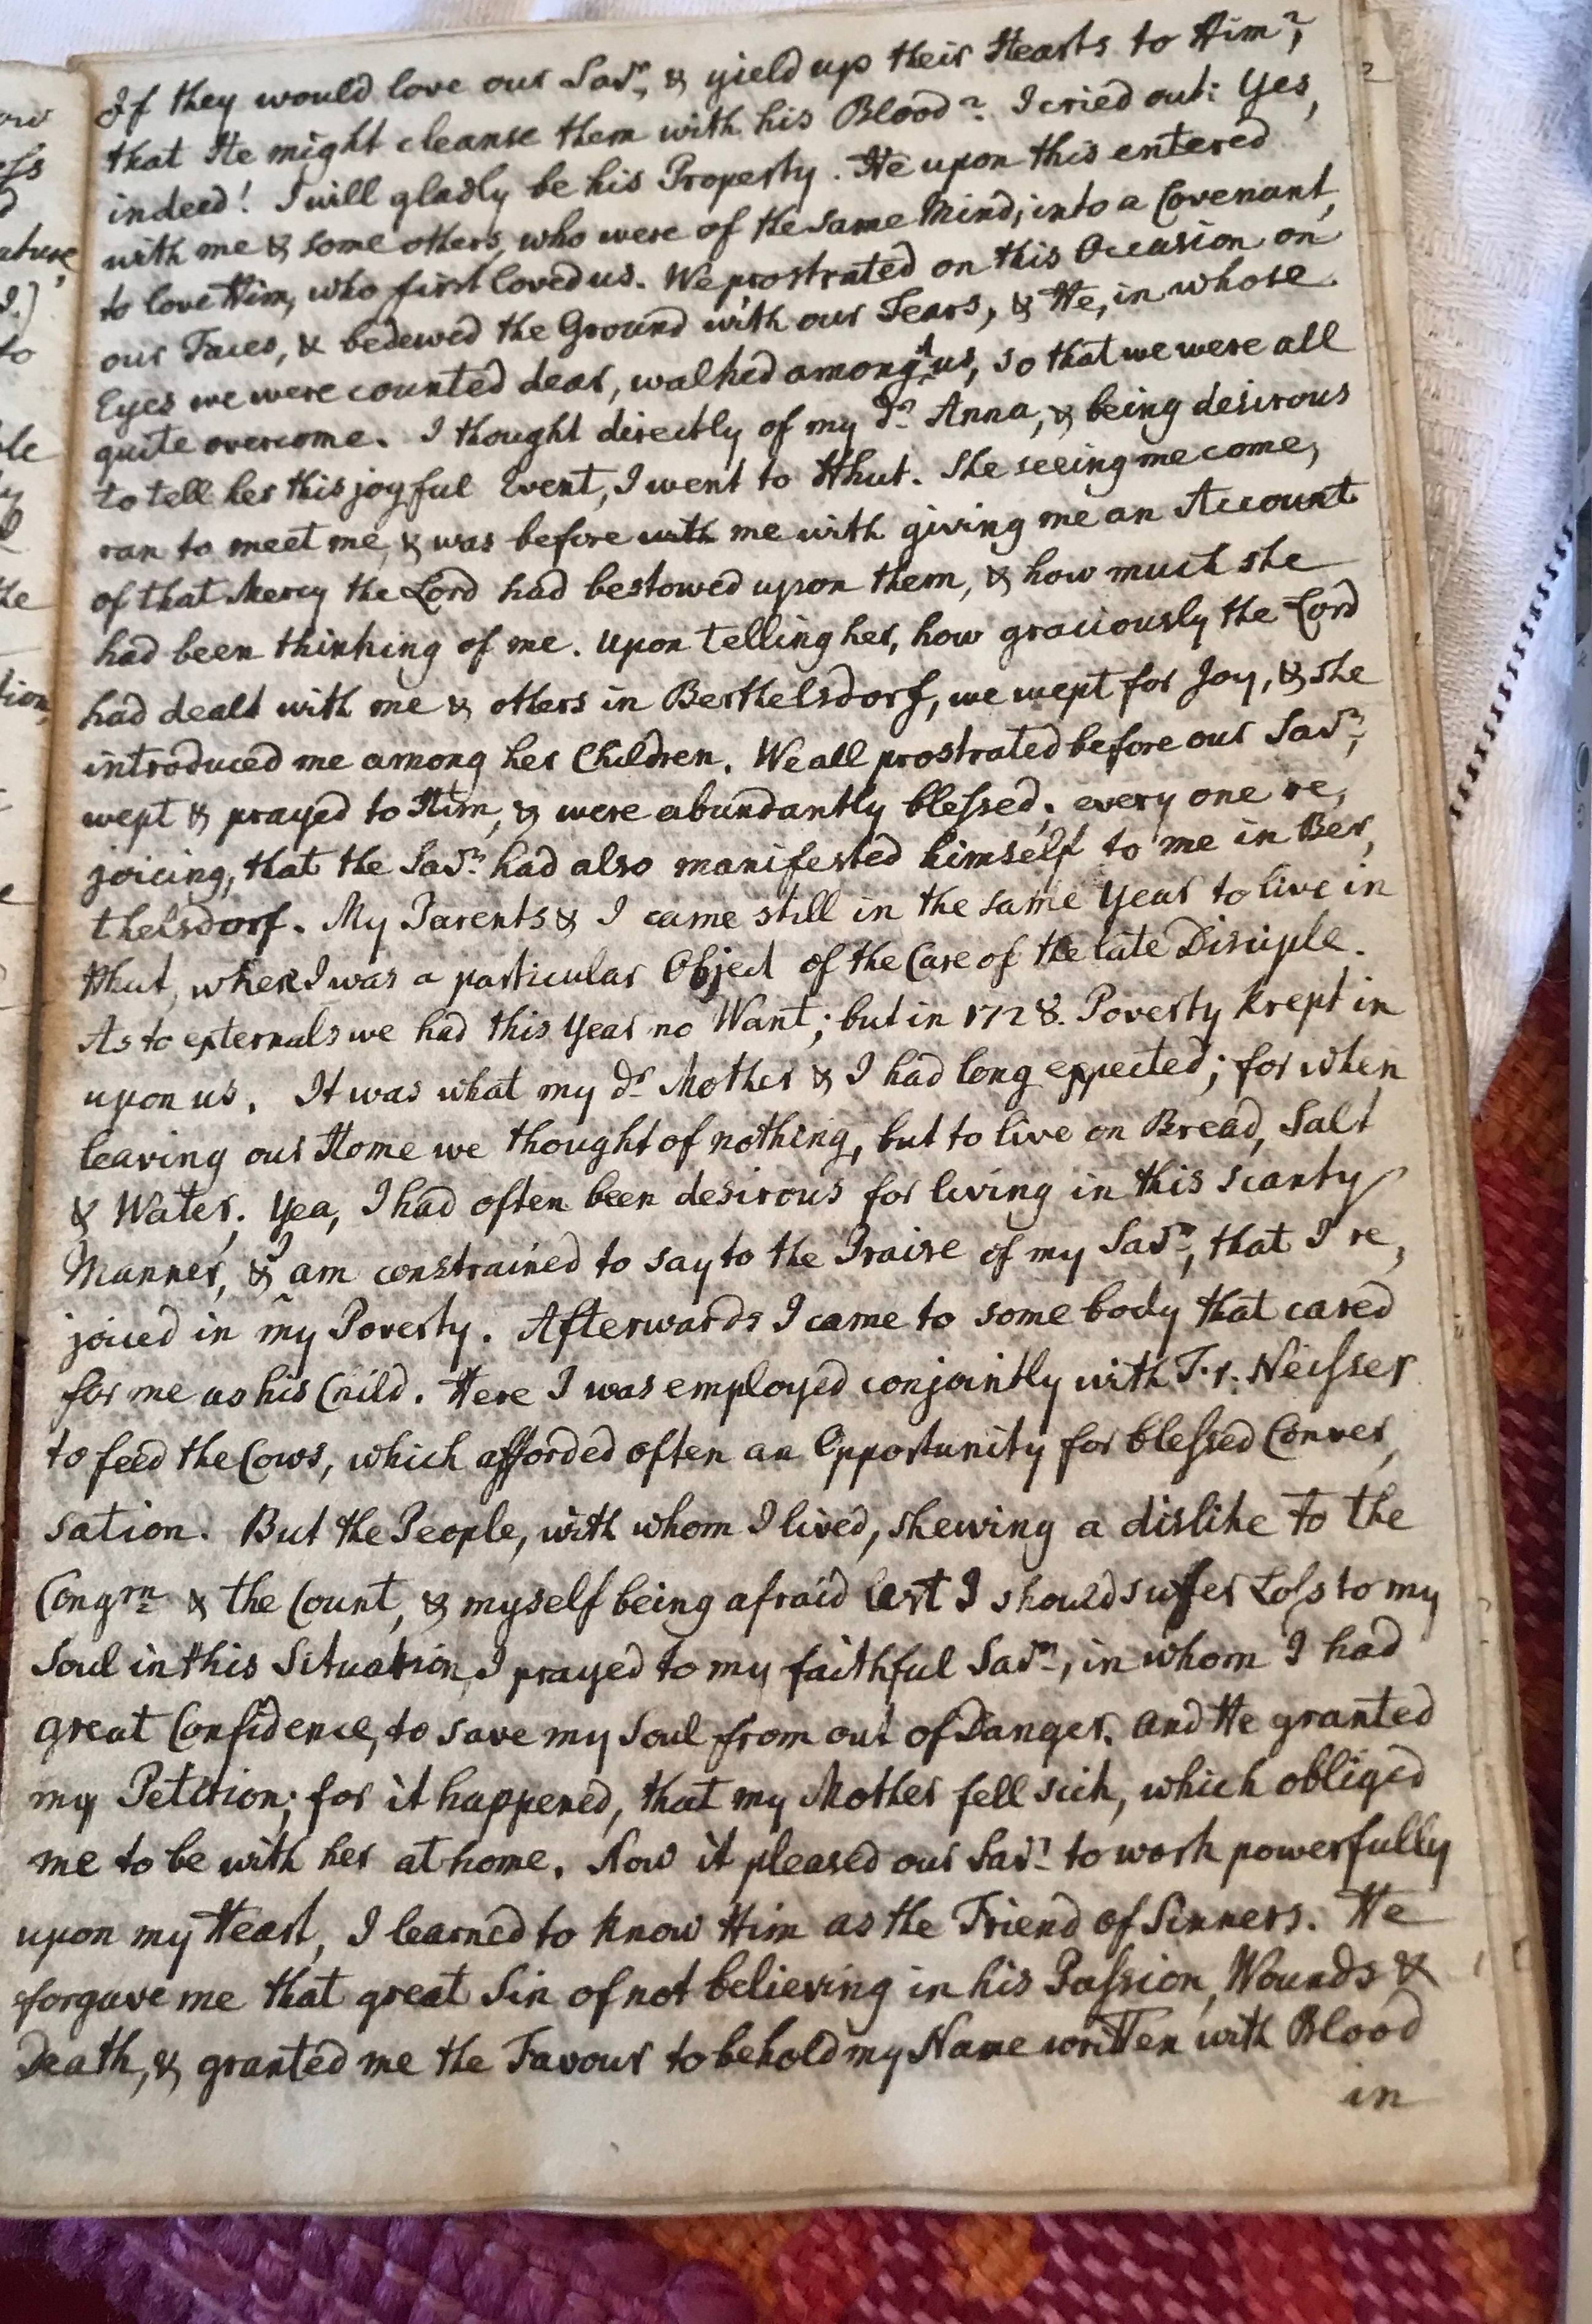 ow
ess
d
ature,
D.)
to
ble
ly
the
tion,
e
If they would love our Savr, & yield up their Hearts to Him?,
that He might cleanse them with his Blood? I cried out: Yes,
indeed! I will gladly be his Property. He upon this entered
with me & some others, who were of the same Mind, into a Covenant,
to love Him, who first loved us. We prostrated on this Occasion on
our Faces, & bedewed the Ground with our Tears, & He, in whose
Eyes we were counted dear, walked amongst us, so that we were all
quite overcome. I thought directly of my dr Anna, & being desirous
to tell her this joyful Event, I went to Hhut. She seeing me come,
ran to meet me, & was before with me with giving me an Account
of that Mercy the Lord had bestowed upon them, & how much she
had been thinking of me. Upon telling her, how graciously the Lord
had dealt with me & others in Berthelsdorf, we wept for Joy, & she
introduced me among her Children. We all prostrated before our Savr,
wept & prayed to Him, & were abundantly blessed; every one re,
joicing, that the Savr had also manifested himself to me in Ber,
thelsdorf. My Parents & I came still in the same Year to live in
Hhut, where I was a particular Object of the Care of the late Disciple.
As to externals we had this Year no Want; but in 1728. Poverty krept in
upon us. It was what my dr Mother & I had long expected; for when
leaving our Home we thought of nothing, but to live on Bread, Salt
& Water. Yea, I had often been desirous for living in this scanty
Manner, & I am constrained to say to the Praise of my Savr, that I re,
joiced in my Poverty. Afterwards I came to some body that cared
for me as his Child. Here I was employed conjointly with F. r. Neisser
to feed the Cows, which afforded often an Opportunity for blessed Conver,
sation. But the People, with whom I lived, shewing a dislike to the
Congrn & the Count, & myself being afraid lest I should suffer Loss to my
Soul in this Situation, I prayed to my faithful Savr, in whom I had
great Confidence, to save my Soul from out of Danger. And He granted
my Petition; for it happened, that my Mother fell sick, which obliged
me to be with her at home. Now it pleased our Savr to work powerfully
upon my Heart, I learned to know Him as the Friend of Sinners. He
forgave me that great Sin of not believing in his Passion, Wounds &
Death, & granted me the Favour to behold my Name written with Blood
in